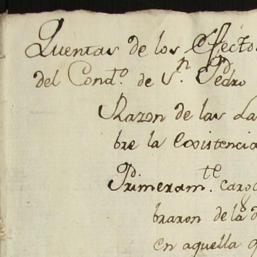 Quentas de los Efecto
del Condº. de Sn. Pedro
Razon de las La
bre la Existencia
Primeramte. caro
braron de la d
en aquella q